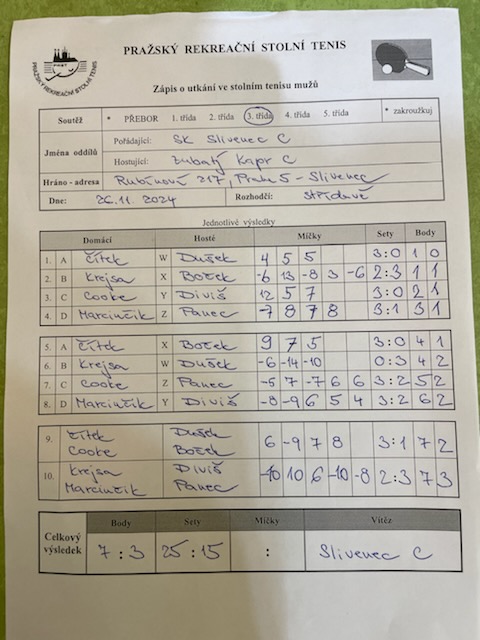 PRAŽSKÝ REKREAČNÍ STOLNÍ TENIS
PRST
PRAŽSKÝ REKREAČNÍ STOLNÍ TENIS
Zápis o utkání ve stolním tenisu mužů
Soutěž * PŘEBOR 1. třída 2. třída 3. třída 4. třída 5. třída * zakroužkuj
Jména oddílů Pořádající: SK Slivenec C
Hostující: Zubatý Kapr C
Hráno - adresa Rubínová 217, Praha 5 - Slivenec
Dne: 26.11 2024 Rozhodčí: Střídavě
Jednotlivé výsledky
Domácí Hosté Míčky Sety Body
1. A Čítek W Dušek 4 5 5 3:0 1 0
2. B Krejsa X Boček -6 13 -8 3 -6 2:3 1 1
3. C Cooke Y Diviš 12 5 7 3:0 2 1
4. D Marcinčik Z Panec -7 8 7 8 3:1 3 1
5. A Čítek X Boček 9 7 5 3:0 4 1
6. B Krejsa W Dušek -6 -14 -10 0:3 4 2
7. C Cooke Z Panec -5 7 -7 6 6 3:2 5 2
8. D Marcinčik Y Diviš -8 -9 6 5 4 3:2 6 2
9. Čítek Dušek 6 -9 7 8 3:1 7 2
Cooke Boček
10. Krejsa Diviš -10 10 6 -10 -8 2:3 7 3
Marcinčik Panec
Celkový výsledek Body Sety Míčky Vítěz
7:3 25:15 : Slivenec C